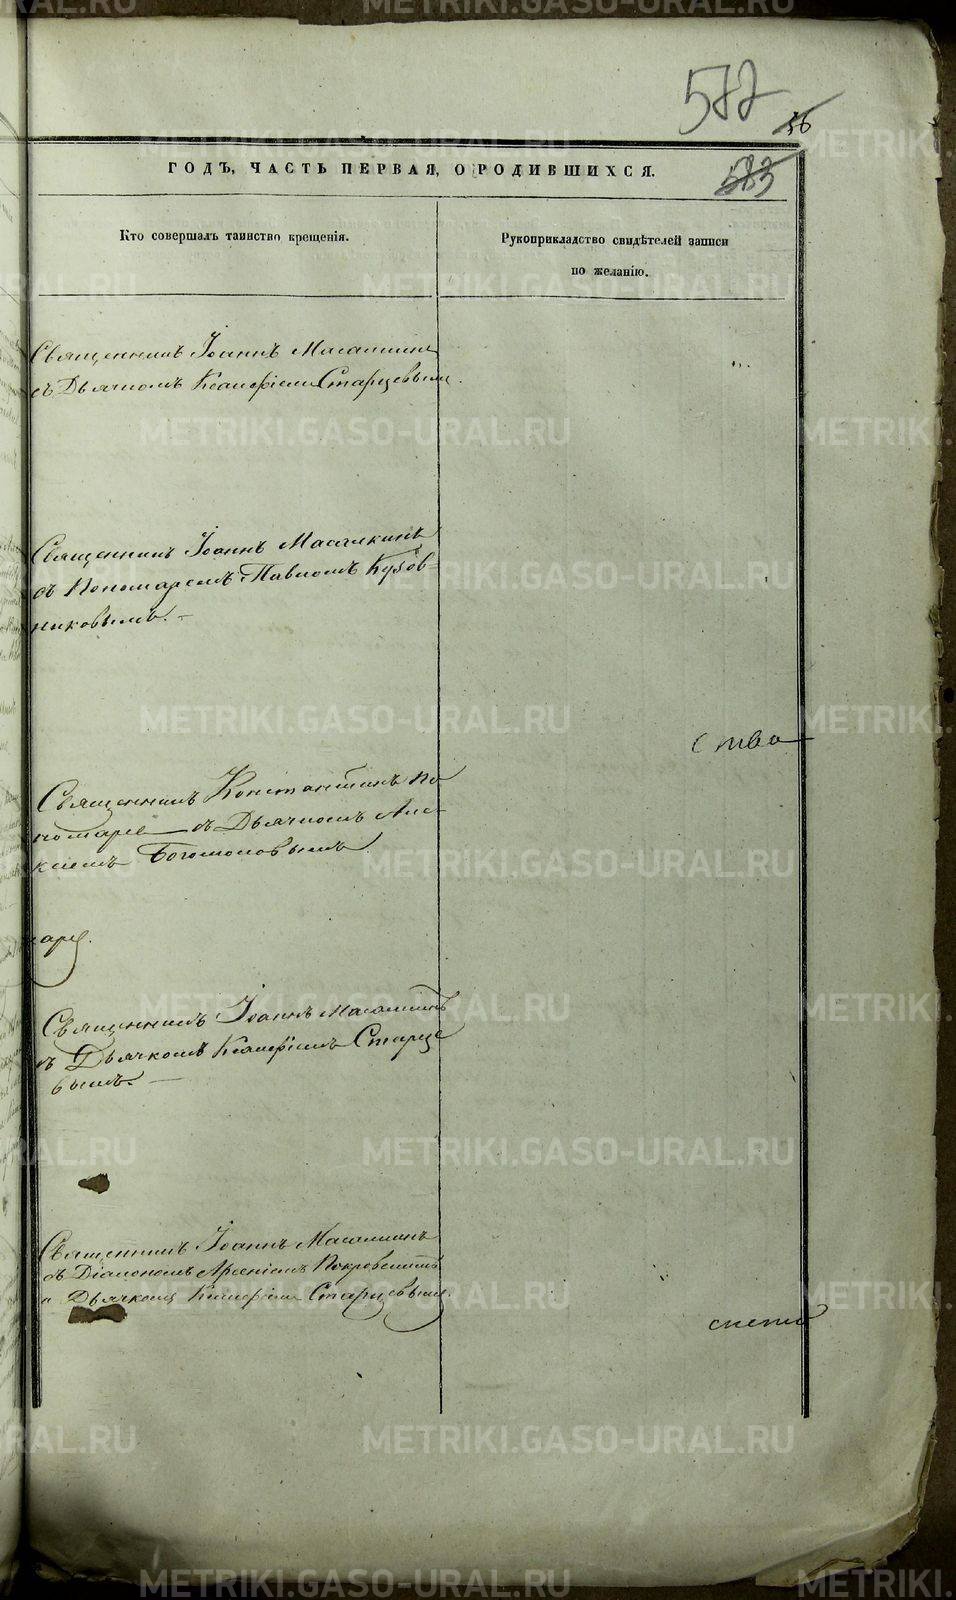 577
56
583
ГОДЪ, ЧАСТЬ ПЕРВАЯ, О РОДИВШИХСЯ.
Кто совершалъ таинство крещенія.
Рукоприкладство свидѣтелей записи
по желанію.
Священникъ Іоаннъ Масалкинъ
съ Дьячкомъ Ксанфіемъ Старцевымъ.
Священникъ Іоаннъ Масалкинъ
съ Пономаремъ Павломъ Кузов-
никовымъ. -
ства
Священникъ Константинъ По
номаре съ Дьячкомъ Але-
ксіемъ Богомоловымъ
аре.
Священникъ Іоаннъ Масалкинъ
съ Дьячкомъ Ксанфіемъ Старце
вымъ. —
Священникъ Іоаннъ Масалкинъ
съ Діакономъ Арсеніемъ Покровскимъ
и Дьячкомъ Ксанфіемъ Старцевымъ.
METRIKI.GASO-URAL.RU